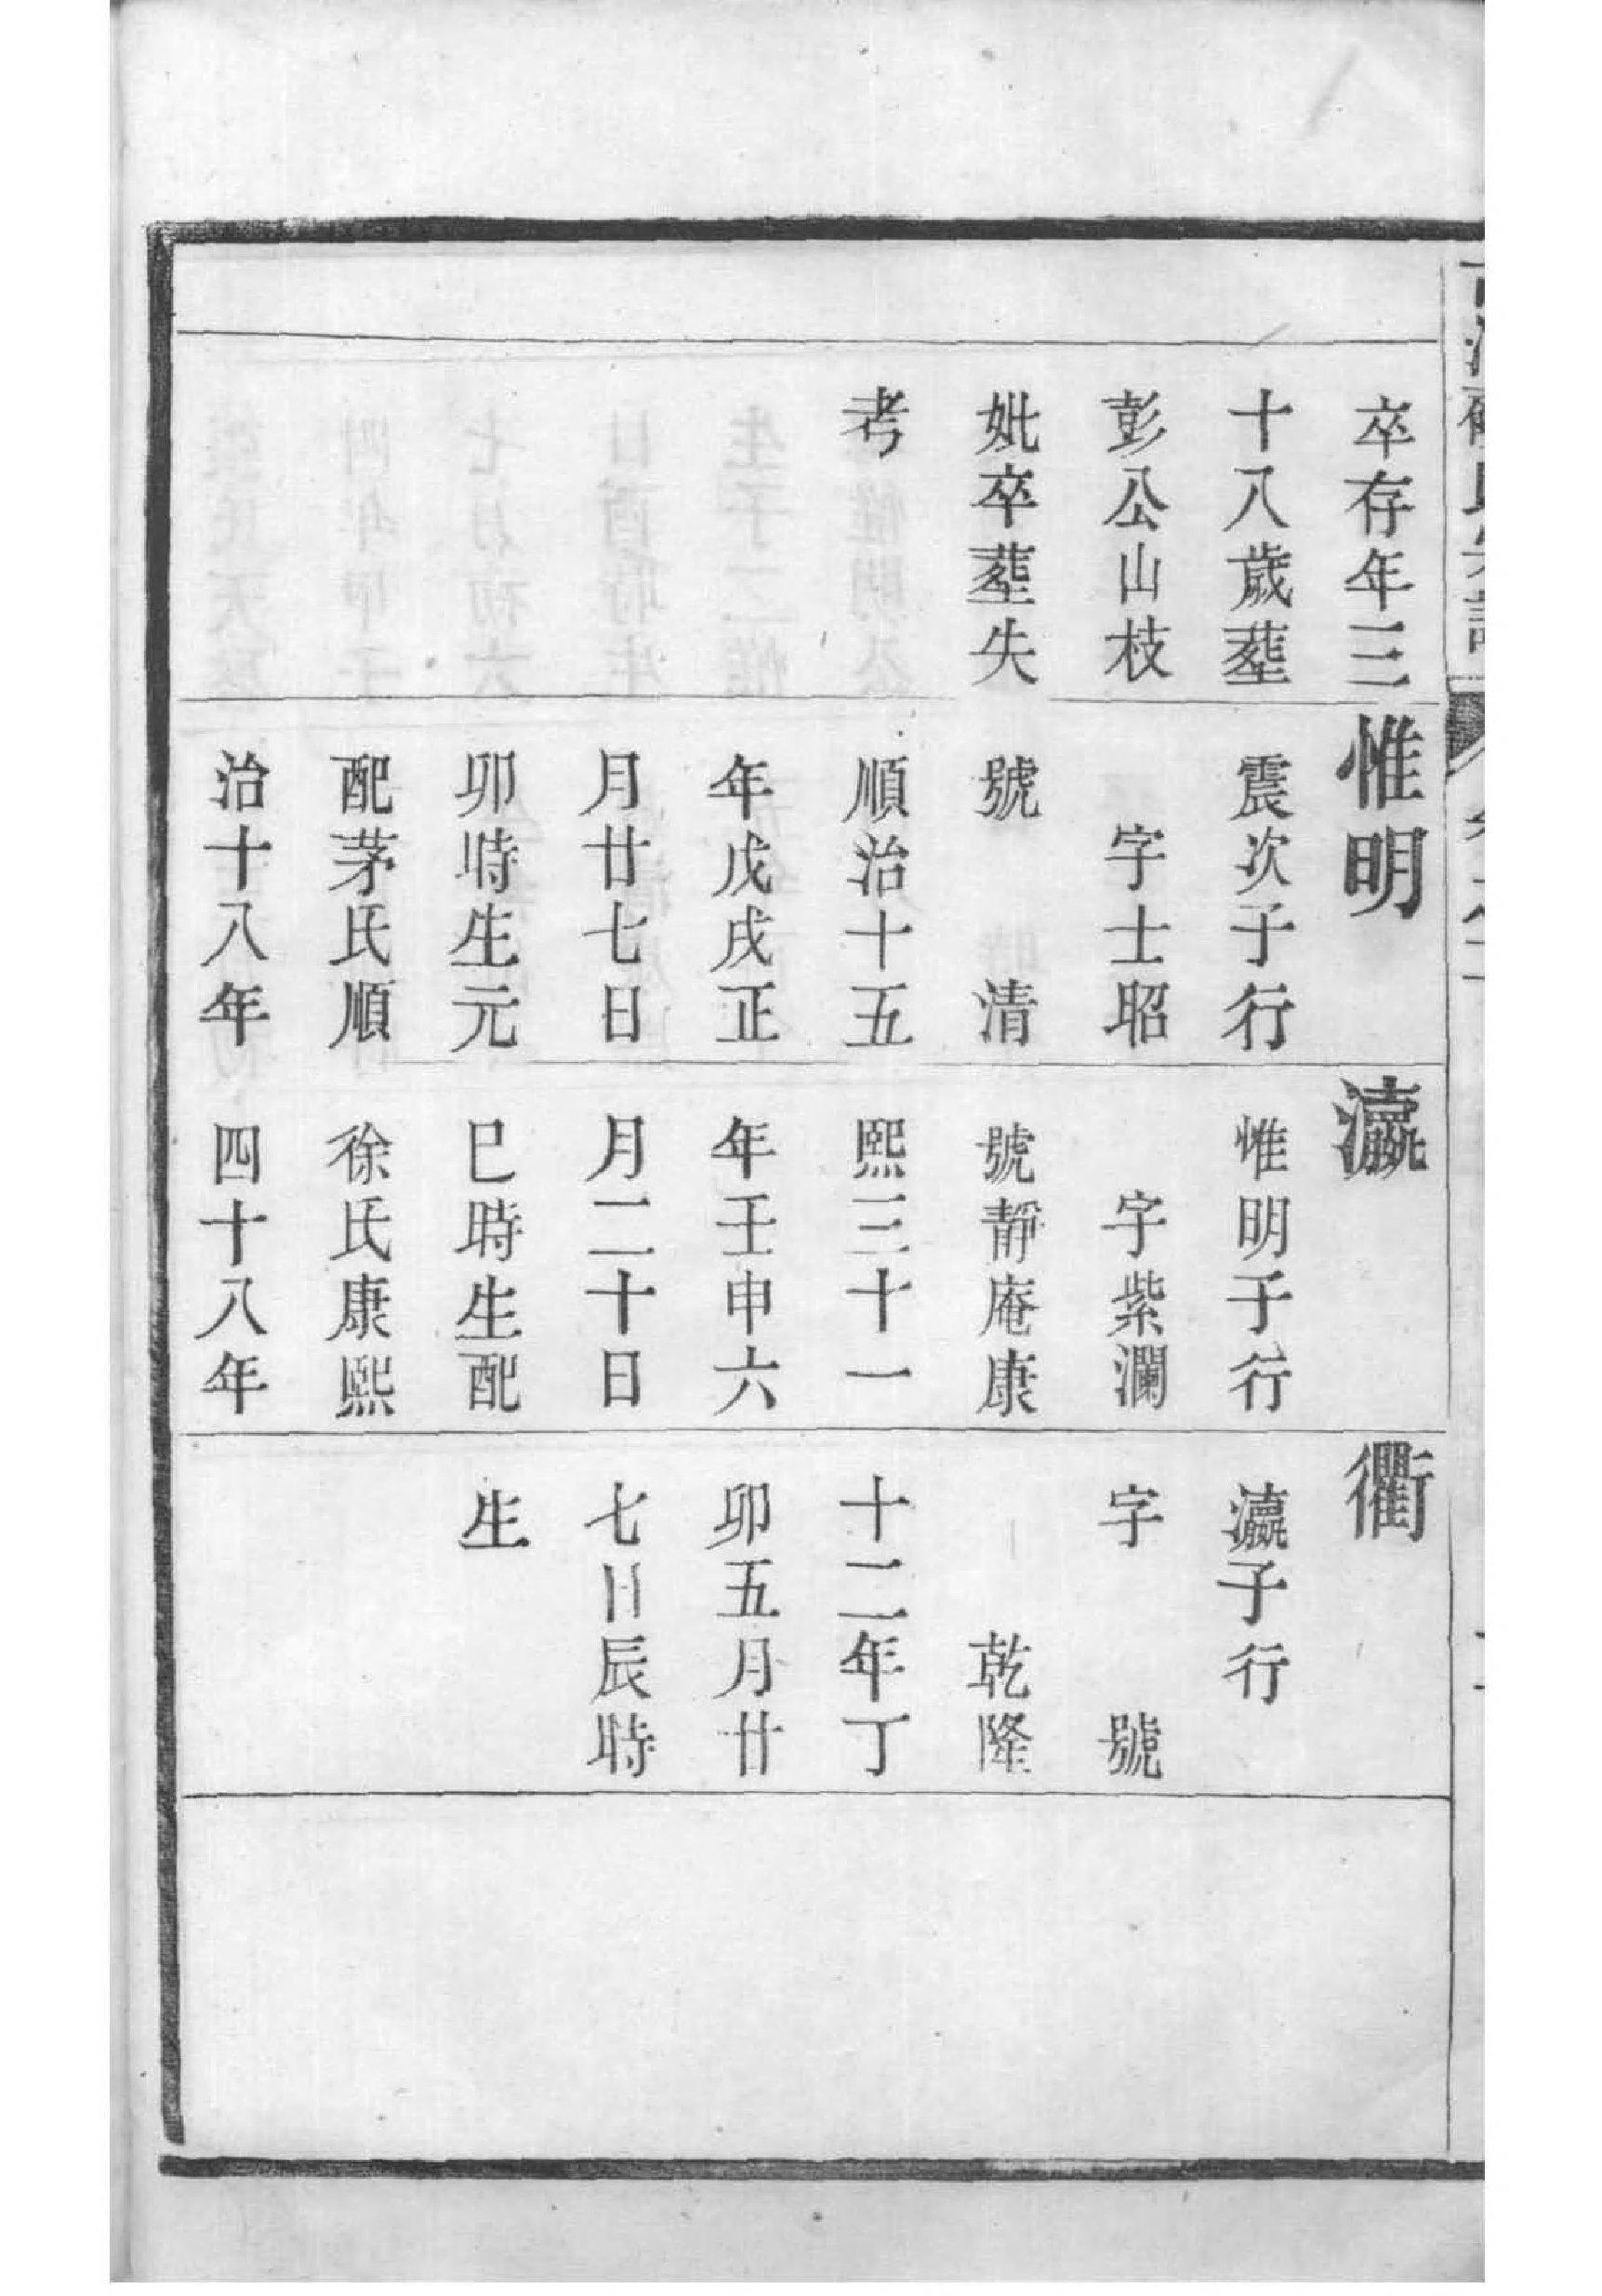 卒存年三
十八歲塟
彭公山枝
妣卒塟失
考
惟明
震次子行
字士昭
號 清
順治十五
年戊戌正
月廿七日
卯時生元
配茅氏順
治十八年
瀛
惟明子行
字紫瀾
號靜庵康
熙三十一
年壬申六
月二十日
巳時生配
徐氏康熙
四十八年
衢
瀛子行
字 號
乾隆
十二年丁
卯五月廿
七日辰時
生